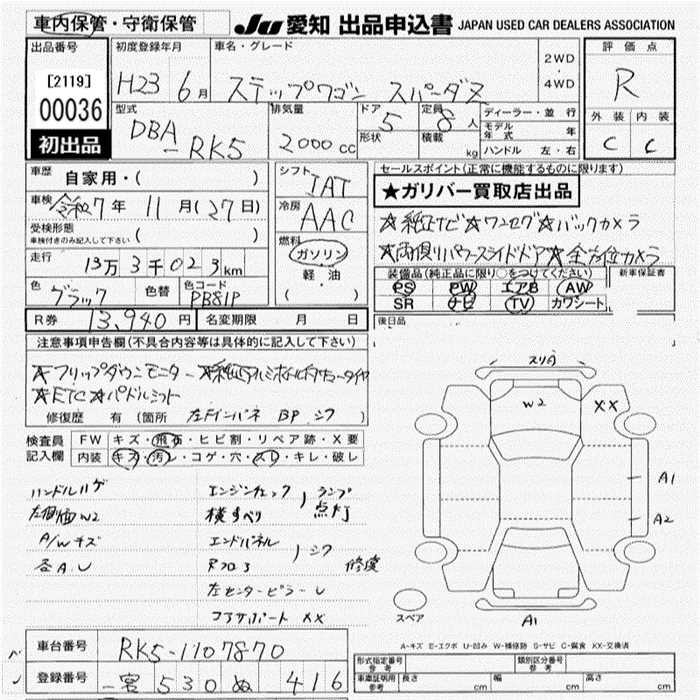 車内保管・守衛保管 JU 愛知 出品申込書 JAPAN USED CAR DEALERS ASSOCIATION
出品番号 初度登録年月 車名・グレード 評価点
[2119] 00036 初出品
H23 6月 ステップワゴン スパーダZ 2WD ・ 4WD R
型式 排気量 ドア 定員 ディーラー・並行 外装 内装
DBA-RK5 2000cc 5 8人 モデル年式 年 C C
形状 積載 kg ハンドル 左・右
車歴 自家用・( ) シフト IAT セールスポイント(正常に機能するものに限ります)
★ガリバー買取店出品
車検 令和7年 11月(27日) 冷房 AAC
★純正ナビ★ワンセグ★バックカメラ
受検形態 車検付きのみ記入して下さい ( ) 燃料 ガソリン
★両側パワースライドドア★全方位カメラ
走行 13万3千023km 軽・油 ( )
装備品(純正品に限り○をつけてください) 新車保証書
PS PW エアB AW
色 ブラック 色替 色コード PB81P
SR ナビ TV カワシート
R券 13,940円 名変期限 月 日
後日品
注意事項申告欄(不具合内容等は具体的に記入して下さい)
★フリップダウンモニター
★ETC★パドルシフト
修復歴 有 (箇所 左Fインパネ BP シワ
検査員記入欄 FW キズ・飛石・ヒビ割・リペア跡・X要
内装 キズ・汚レ・コゲ・穴・スレ・キレ・破レ
ハンドルハゲ エンジンチェックランプ点灯
左側面W2 横すべり
A/Wキズ エンドパネル シワ
各A.U Rフロア 修復
左センターピラーU
コアサポートXX
スリ介
W2 XX
A1
A2
スペア A1
A-キズ E-エクボ U-凹み W-補修跡 S-サビ C-腐食 XX-交換済
車台番号 RK5-1107870
登録番号 一宮530ぬ416
形式指定番号 参考 類別区分番号 参考
車庫証明用 参考 長さ cm 幅 cm 高さ cm